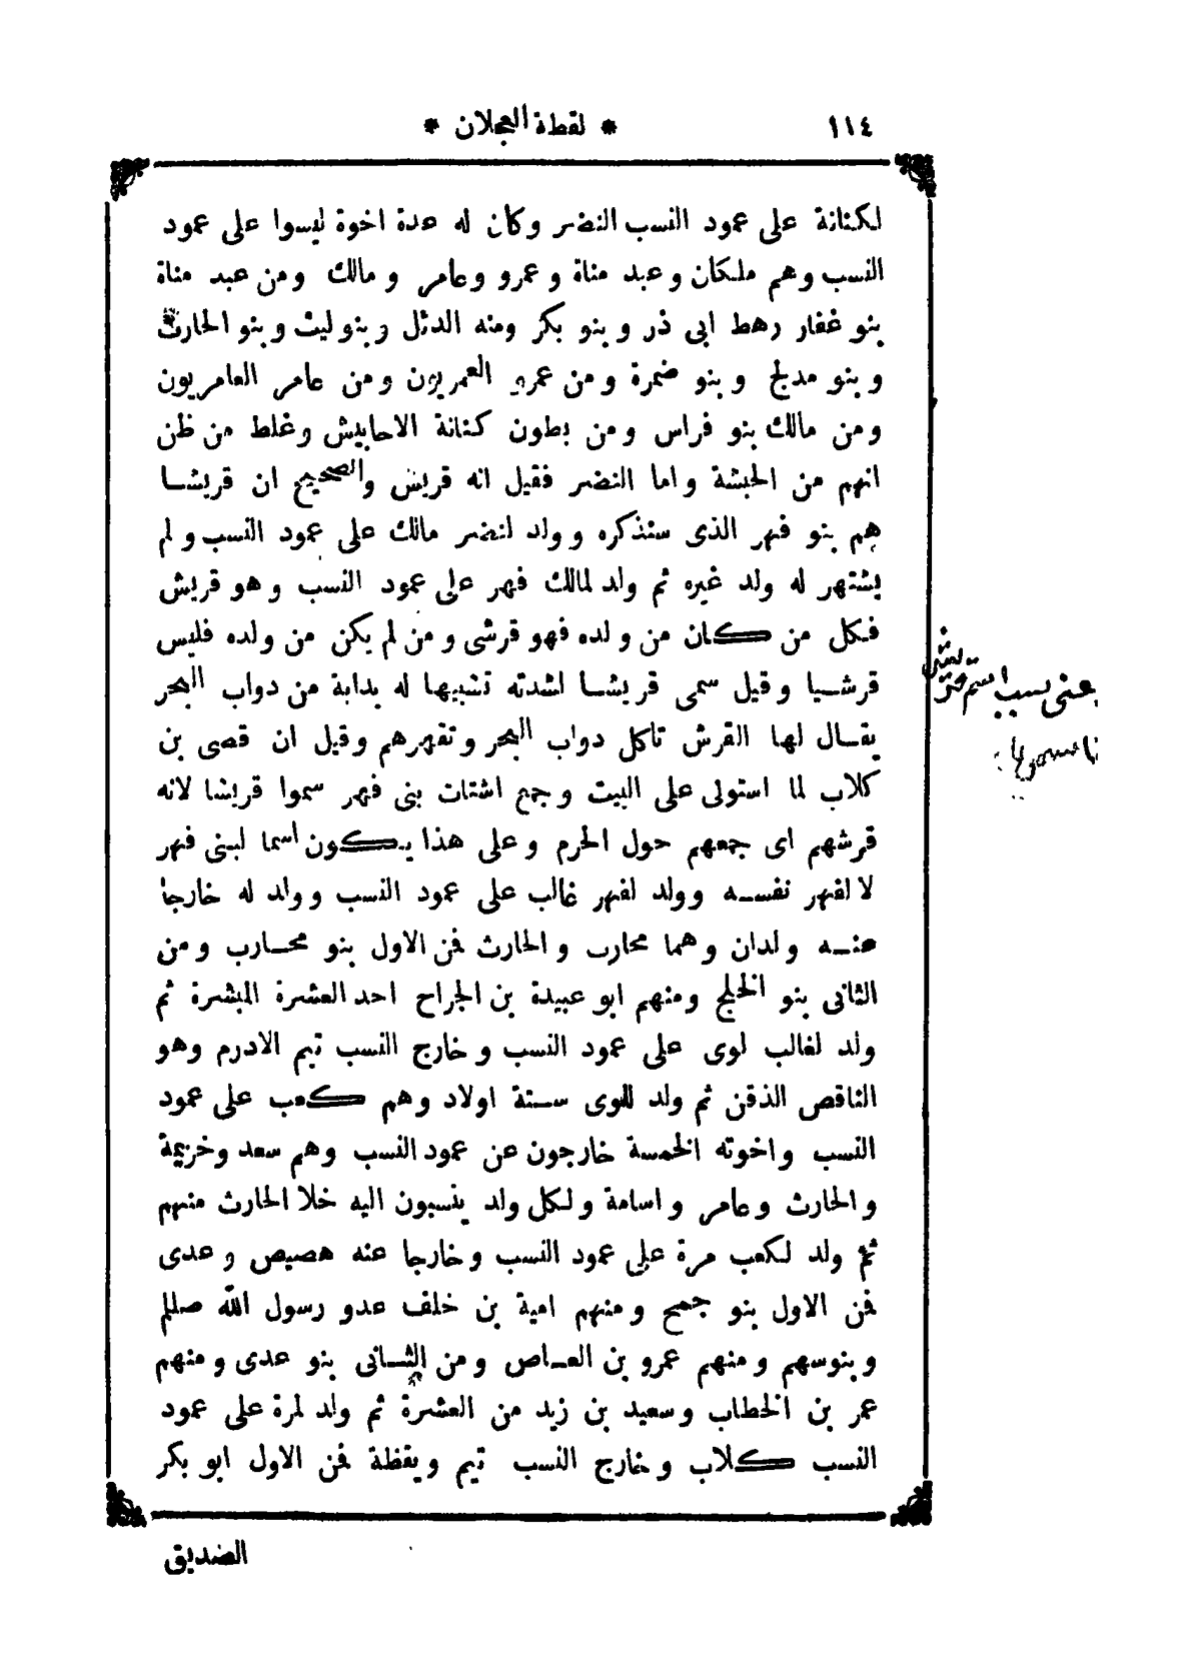 ١١٤
* لقطة العجلان *
لكنانة على عمود النسب النضر وكان له عدة اخوة ليسوا على عمود
النسب وهم ملكان وعبد مناة وعمرو وعامر ومالك ومن عبد مناة
بنو غفار رهط ابى ذر وبنو بكر ومنه الدئل وبنوليث وبنو الحارث
وبنو مدلج وبنو ضمرة ومن عمرو العمريون ومن عامر العامريون
ومن مالك بنو فراس ومن بطون كنانة الاحابيش وغلط من ظن
انهم من الحبشة واما النضر فقيل انه قريش والصحيح ان قريشا
هم بنو فهر الذى سنذكره وولد لنضر مالك على عمود النسب ولم
يشتهر له ولد غيره ثم ولد لمالك فهر على عمود النسب وهو قريش
فكل من كان من ولده فهو قرشى ومن لم يكن من ولده فليس
قرشيا وقيل سمى قريشا لشدته تشبيها له بدابة من دواب البحر
يقال لها القرش تاكل دواب البحر وتقهرهم وقيل ان قصى بن
كلاب لما استولى على البيت وجمع اشتات بنى فهر سموا قريشا لانه
قرشهم اى جمعهم حول الحرم وعلى هذا يكون اسما لبنى فهر
لا لفهر نفسه وولد لفهر غالب على عمود النسب وولد له خارجا
عنه ولدان وهما محارب والحارث فمن الاول بنو محارب ومن
الثانى بنو الخلج ومنهم ابو عبيدة بن الجراح احد العشرة المبشرة ثم
ولد لغالب لوى على عمود النسب وخارج النسب تيم الادرم وهو
الناقص الذقن ثم ولد للوى ستة اولاد وهم كعب على عمود
النسب واخوته الخمسة خارجون عن عمود النسب وهم سعد وخزيمة
والحارث وعامر واسامة ولكل ولد ينسبون اليه خلا الحارث منهم
ثم ولد لكعب مرة على عمود النسب وخارجا عنه هصيص وعدى
فمن الاول بنو جمح ومنهم امية بن خلف عدو رسول الله صللم
وبنوسهم ومنهم عمرو بن العاص ومن الثانى بنو عدى ومنهم
عمر بن الخطاب وسعيد بن زيد من العشرة ثم ولد لمرة على عمود
النسب كلاب وخارج النسب تيم ويقظة فمن الاول ابو بكر
الصديق